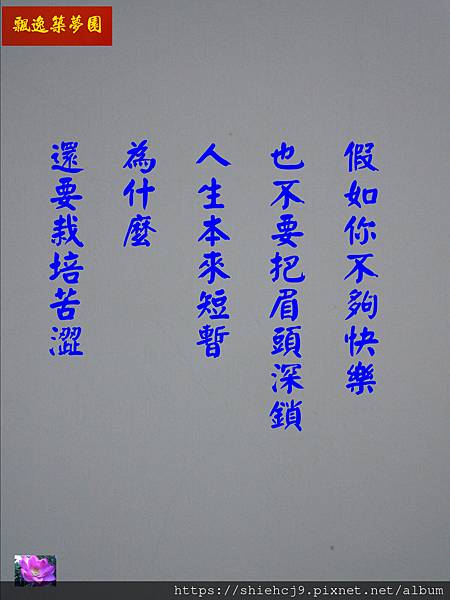 飄逸築夢園
假如你不夠快樂
也不要把眉頭深鎖
人生本來短暫
為什麼
還要栽培苦澀
https://shiehcj9.pixnet.net/album